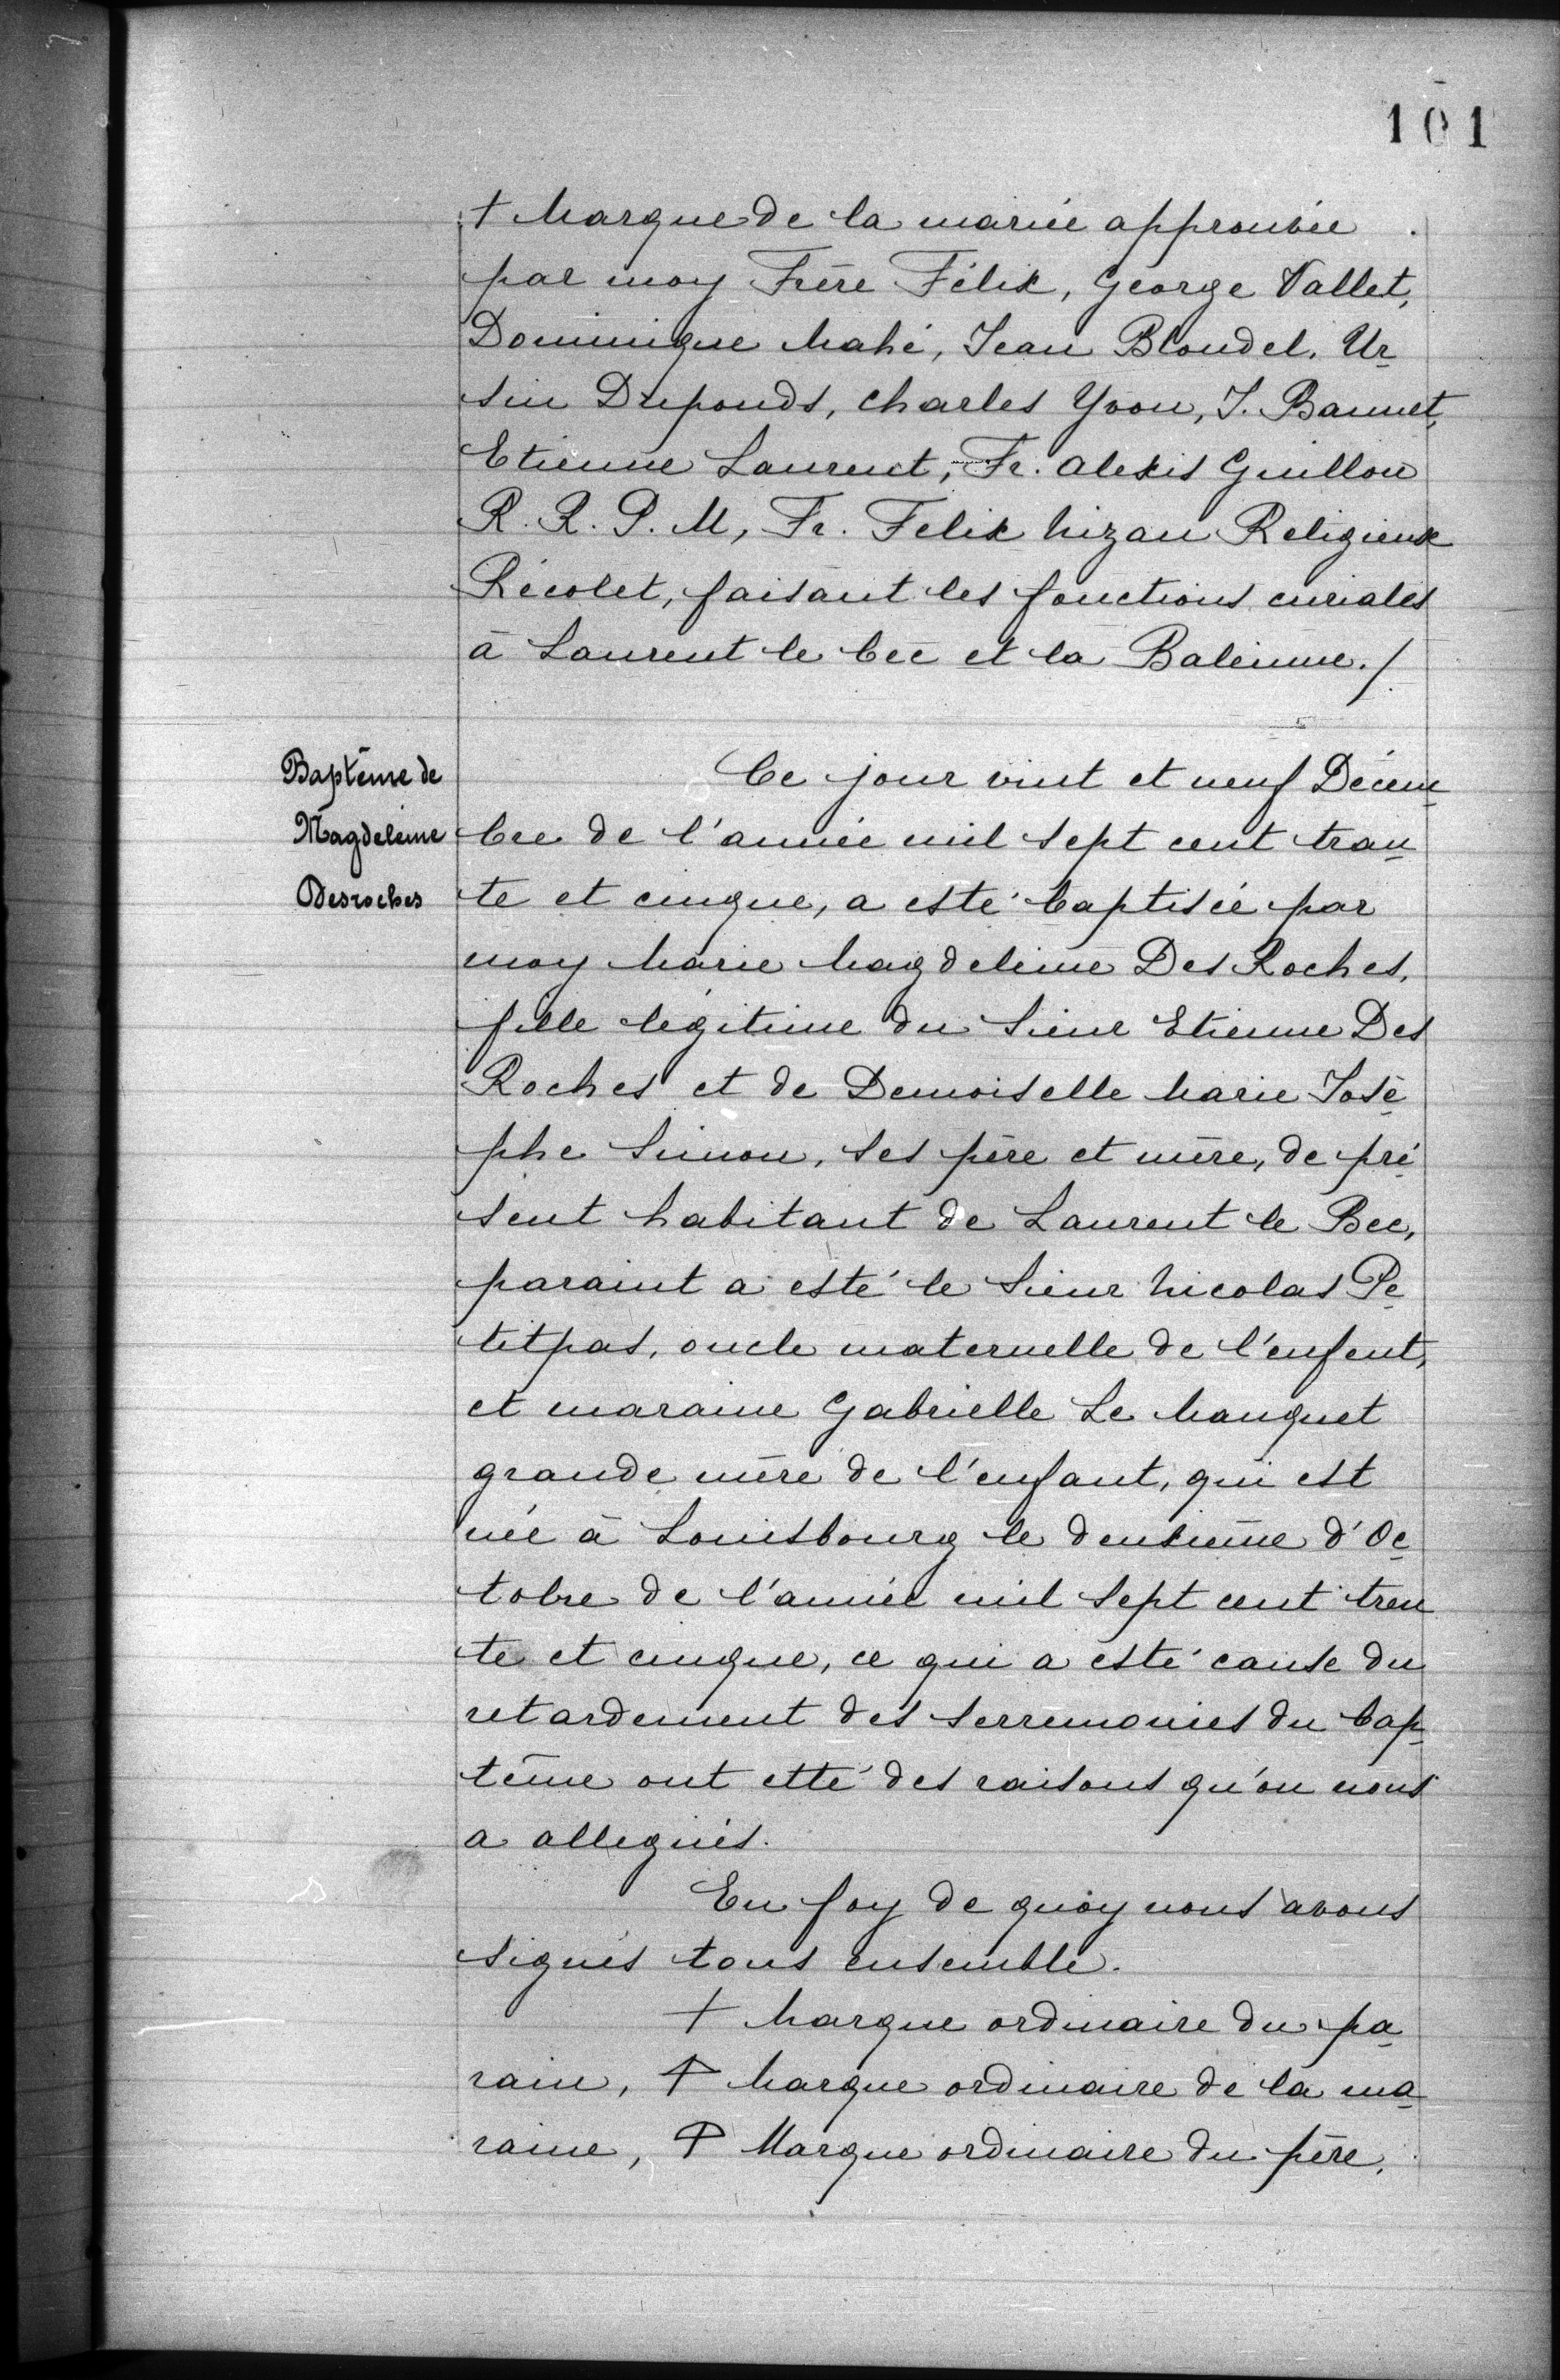 101
+ Marque de la mariée approuvée
par moy Frère Félix, George Vallet,
Dominique Mahé, Jean Blondel, Ur
sin Duponds, Charles Yvon, J. Bannet,
Etienne Laurent, Fr. Alexis Guillou
R. R. P. M, Fr. Felix Nizan Religieux
Récolet, faisant les fonctions curiales
à Laurent le bec et la Baleinne./
Baptême de
Magdeleine
Desroches
Ce jour vint et neuf Décem
bre de l'année mil sept cent tran
te et cinque, a esté baptisée par
moy Marie Magdeleine Des Roches,
fille légitime du Sieur Etienne Des
Roches et de Demoiselle Marie José
phe Simon, ses père et mère, de pré
sent habitant de Laurent le Bec,
paraint a esté le Sieur Nicolas Pe
titpas, oncle maternelle de l'enfent,
et maraine Gabrielle Le Manquet
grande mère de l'enfant, qui est
née à Louisbourg le deuxième d'Oc
tobre de l'année mil sept cent tren
te et cinque, ce qui a esté cause du
retardement des serremonies du bap
tême ont etté des raisons qu'on nous
a allegués.
En foy de quoy nous avons
signés tous ensemble.
+ Marque ordinaire du pa
rain, + Marque ordinaire de la ma
raine, + Marque ordinaire du père,